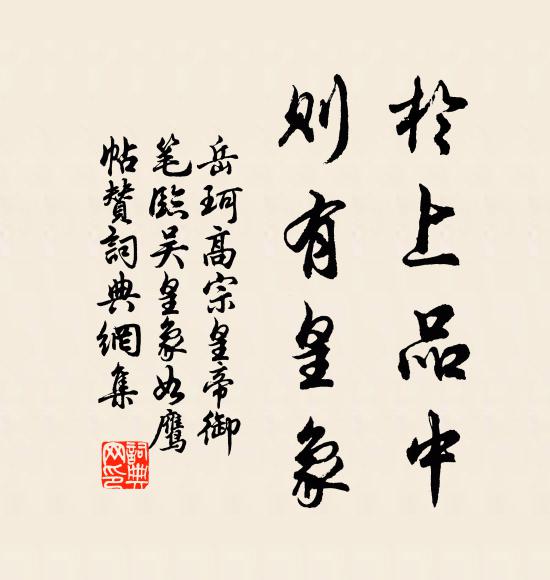 於上品中
则有皇象
岳珂高宗皇帝御
笔临吴皇象如鹰
帖赞詞典網集
詞典网印